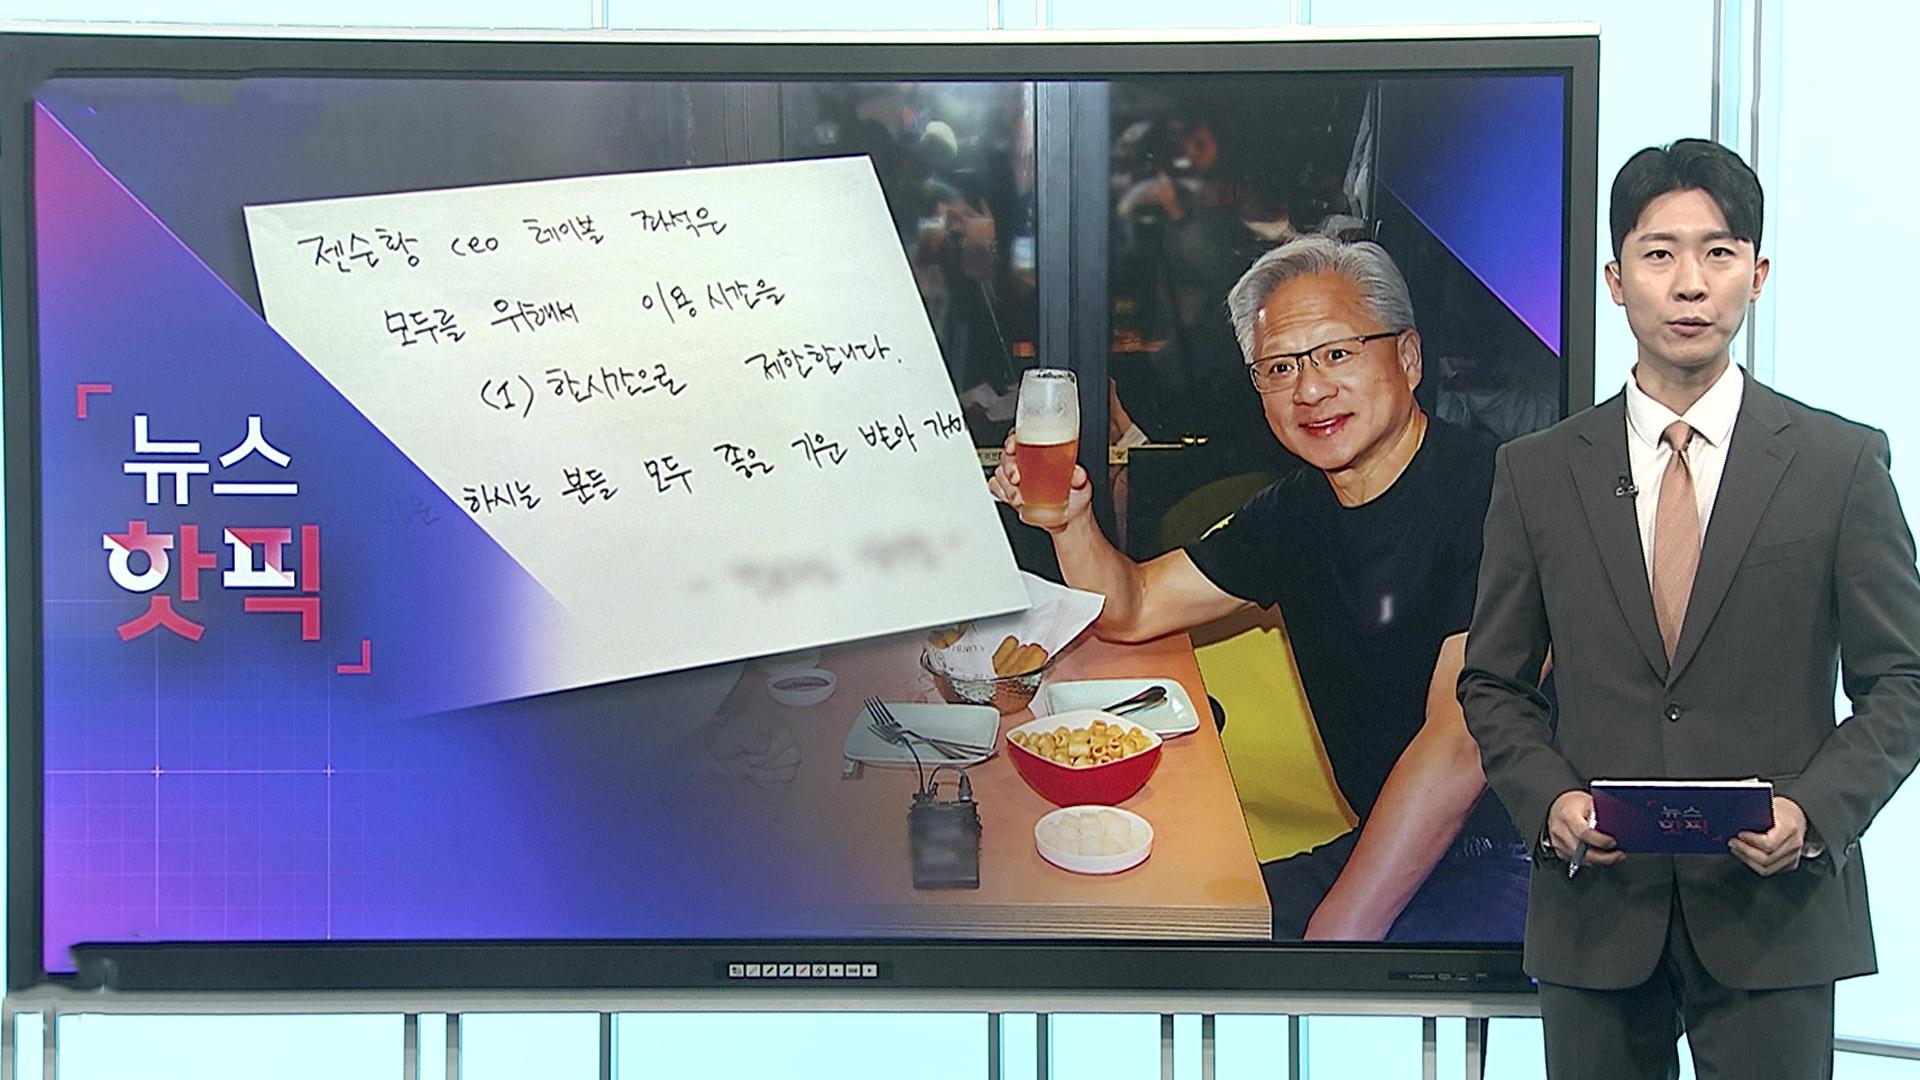 젠슨황 ceo 테이블 좌석은
모두를 위해서 이용 시간을
(1) 한시간으로 제한합니다.
하시는 분들 모두 좋은 기운 받아
뉴스
핫픽
뉴스
핫픽